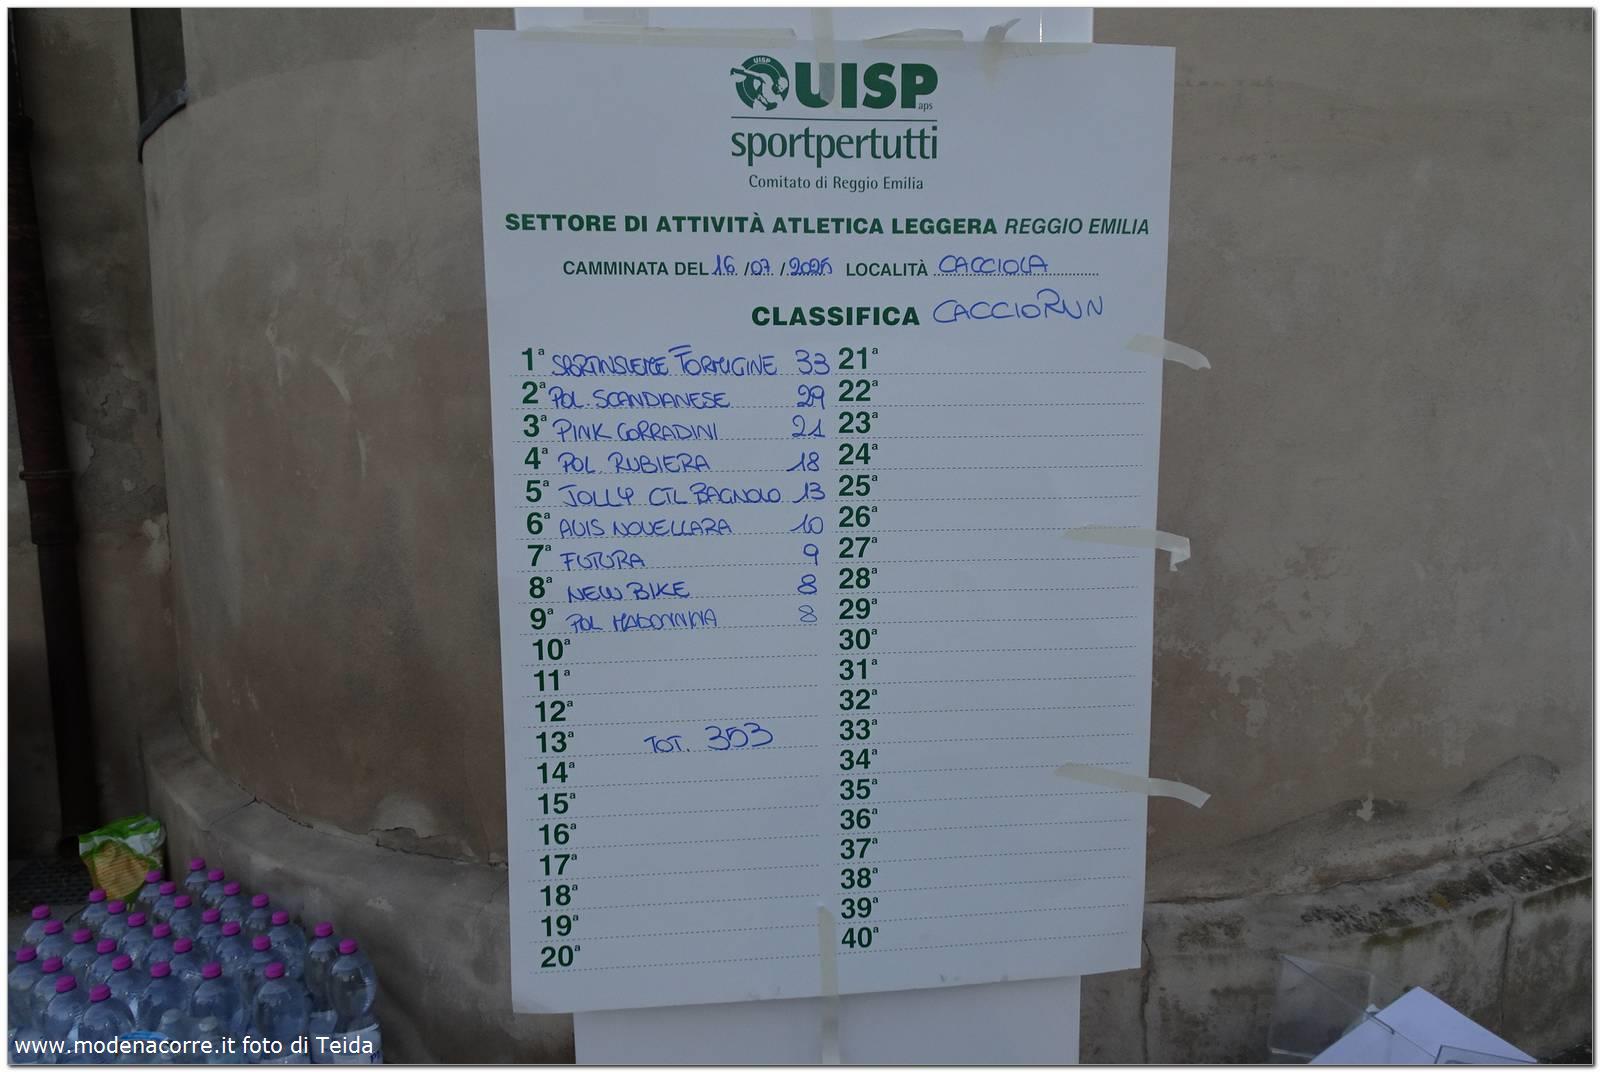 UISP
UISP
aps
sportpertutti
Comitato di Reggio Emilia
SETTORE DI ATTIVITÀ ATLETICA LEGGERA REGGIO EMILIA
CAMMINATA DEL 16 /07 /2025 LOCALITÀ CACCIOLA
CLASSIFICA CACCIORUN
1ª SPORTINSIEME FORMIGINE 33
2ª POL. SCANDIANESE 29
3ª PINK CORRADINI 21
4ª POL. RUBIERA 18
5ª JOLLY CTL BAGNOLO 13
6ª AVIS NOVELLARA 10
7ª FUTURA 9
8ª NEW BIKE 8
9ª POL MADONNINA 8
10ª
11ª
12ª
13ª TOT. 353
14ª
15ª
16ª
17ª
18ª
19ª
20ª
21ª
22ª
23ª
24ª
25ª
26ª
27ª
28ª
29ª
30ª
31ª
32ª
33ª
34ª
35ª
36ª
37ª
38ª
39ª
40ª
www.modenacorre.it foto di Teida